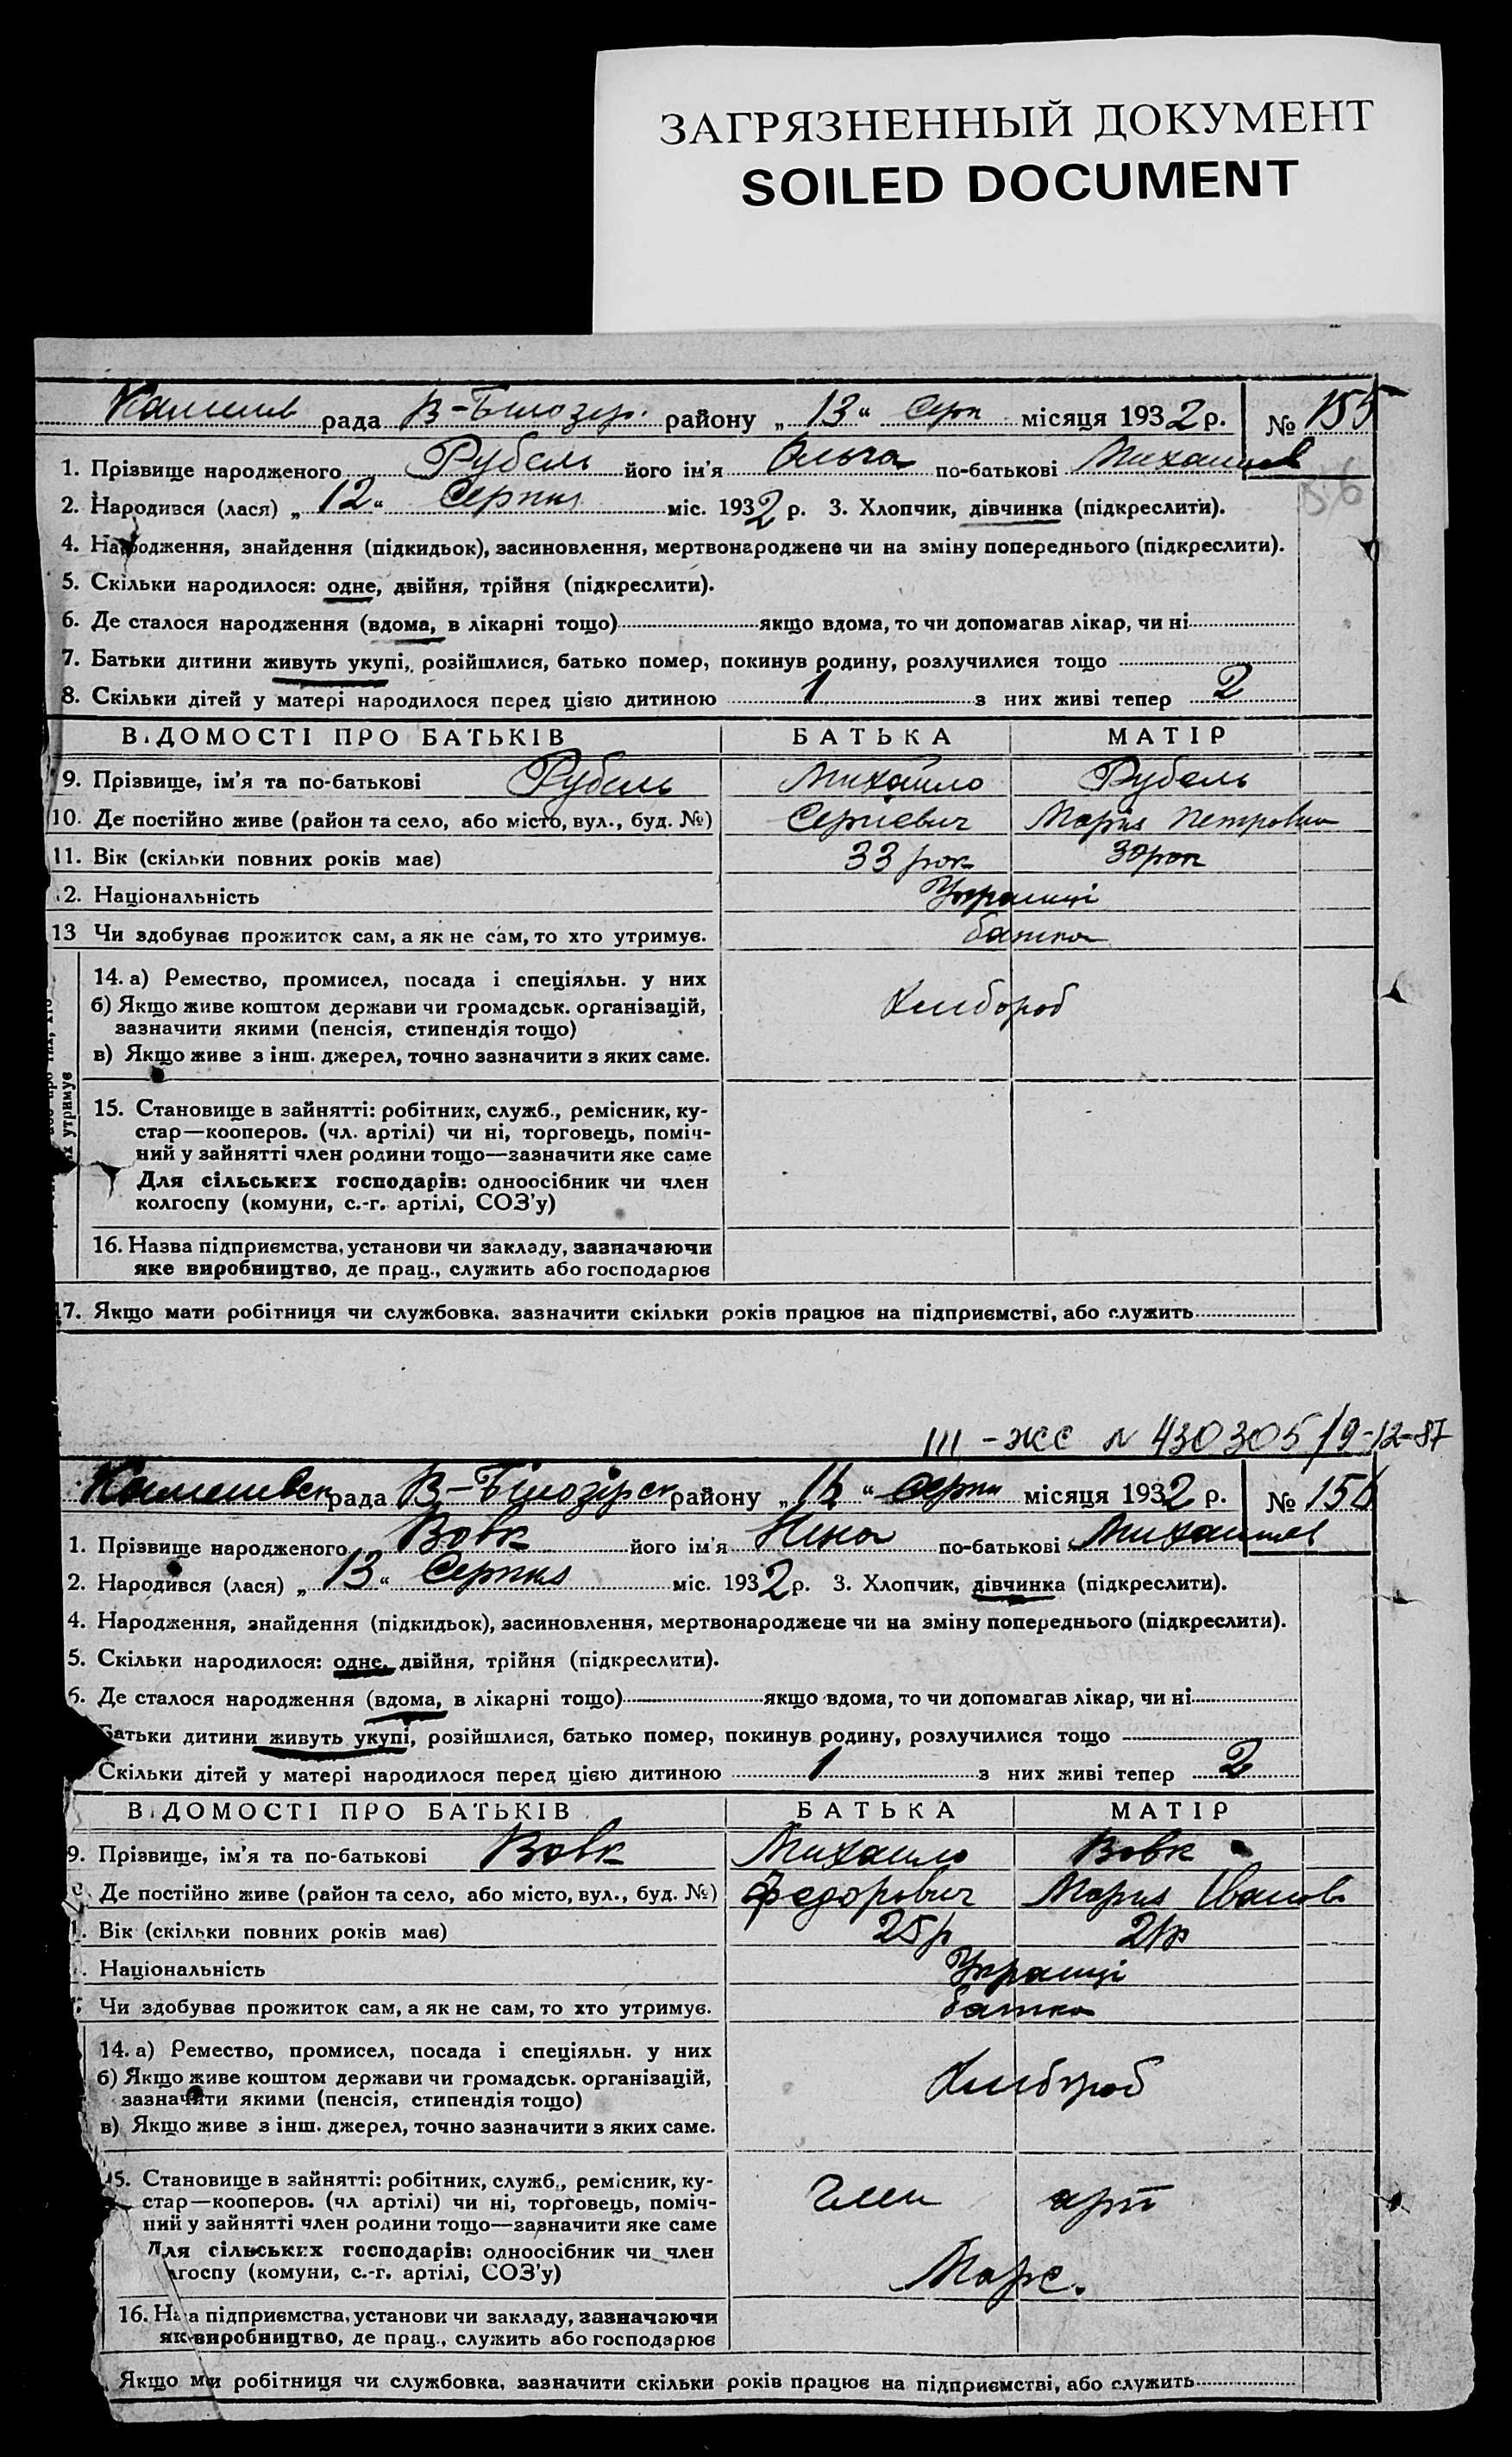 ЗАГРЯЗНЕННЫЙ ДОКУМЕНТ
SOILED DOCUMENT
рада В-Білозер. району „13“ Серп місяця 1932 р. № 155
1. Прізвище народженого Рубель його ім'я Ольга по-батькові Михайлів
156
2. Народився (лася) „12“ Серпня міс. 1932 р. 3. Хлопчик, дівчинка (підкреслити).
4. Народження, знайдення (підкидьок), засиновлення, мертвонароджене чи на зміну попереднього (підкреслити).
5. Скільки народилося: одне, двійня, трійня (підкреслити).
6. Де сталося народження (вдома, в лікарні тощо) якщо вдома, то чи допомагав лікар, чи ні
7. Батьки дитини живуть укупі, розійшлися, батько помер, покинув родину, розлучилися тощо
8. Скільки дітей у матері народилося перед цією дитиною 1 з них живі тепер 2
ВІДОМОСТІ ПРО БАТЬКІВ БАТЬКА МАТІР
9. Прізвище, ім'я та по-батькові Рубель Михайло Рубель
10. Де постійно живе (район та село, або місто, вул., буд. №) Сергієвич Марія Петровна
11. Вік (скільки повних років має) 33 рок 30 рок
12. Національність Українці
13 Чи здобуває прожиток сам, а як не сам, то хто утримує. батько
14. а) Ремество, промисел, посада і спеціяльн. у них
б) Якщо живе коштом держави чи громадськ. організацій, Хлібороб
зазначити якими (пенсія, стипендія тощо)
в) Якщо живе з інш. джерел, точно зазначити з яких саме.
х утримує
15. Становище в зайнятті: робітник, служб., ремісник, ку-
стар—кооперов. (чл. артілі) чи ні, торговець, поміч-
ний у зайнятті член родини тощо—зазначити яке саме
Для сільських господарів: одноосібник чи член
колгоспу (комуни, с.-г. артілі, СОЗ'у)
16. Назва підприємства, установи чи закладу, зазначаючи
яке виробництво, де прац., служить або господарює
17. Якщо мати робітниця чи службовка, зазначити скільки років працює на підприємстві, або служить
III - ЖС № 430305 19-12-87
рада В-Білозірск району „ “ Серпн місяця 1932 р. № 156
1. Прізвище народженого Вовк його ім'я Ніна по-батькові Михайлів
2. Народився (лася) „13“ Серпня міс. 1932 р. 3. Хлопчик, дівчинка (підкреслити).
4. Народження, знайдення (підкидьок), засиновлення, мертвонароджене чи на зміну попереднього (підкреслити).
5. Скільки народилося: одне, двійня, трійня (підкреслити).
6. Де сталося народження (вдома, в лікарні тощо) якщо вдома, то чи допомагав лікар, чи ні
Батьки дитини живуть укупі, розійшлися, батько помер, покинув родину, розлучилися тощо
Скільки дітей у матері народилося перед цією дитиною 1 з них живі тепер 2
ВІДОМОСТІ ПРО БАТЬКІВ БАТЬКА МАТІР
9. Прізвище, ім'я та по-батькові Вовк Михайло Вовк
Де постійно живе (район та село, або місто, вул., буд. №) Федорович Марія Іванов
Вік (скільки повних років має) 25 р 21 р
Національність Українці
Чи здобуває прожиток сам, а як не сам, то хто утримує. батько
14. а) Ремество, промисел, посада і спеціяльн. у них
б) Якщо живе коштом держави чи громадськ. організацій, Хлібороб
зазначити якими (пенсія, стипендія тощо)
в) Якщо живе з інш. джерел, точно зазначити з яких саме.
15. Становище в зайнятті: робітник, служб., ремісник, ку-
стар—кооперов. (чл артілі) чи ні, торговець, поміч- Член арт
ний у зайнятті член родини тощо—зазначити яке саме
Для сільських господарів: одноосібник чи член
лгоспу (комуни, с.-г. артілі, СОЗ'у) Маркс.
16. На а підприємства, установи чи закладу, зазначаючи
як виробництво, де прац., служить або господарює
Якщо ми робітниця чи службовка, зазначити скільки років працює на підприємстві, або служить